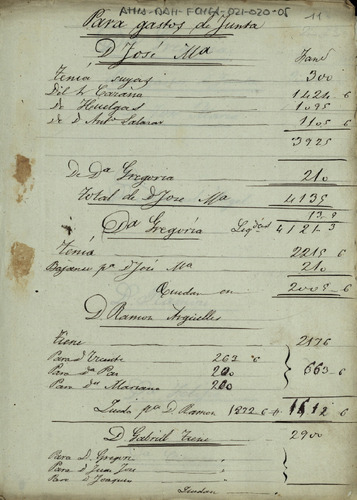 AHM-BAH-FCMGA-021-020-05
11
Para gastos de Junta
D José Mª
tenia suyas 300
Del Sr Caraña 1424 6
De Huelgas 1095
de D Antº Salazar 1105 6
3925
De Dª Gregoria 210
total de D Jose Mª 4135
Dª Gregoria
4121 3
tenia 2215 6
Bajanse pª D José Mª 210
Quedan en 2005 6
D Ramon Argüelles
tiene 2176
Para D Vicente 263 6
Para Dª Paz 200 663 6
Para Dn Mariano 200
Queda pª D Ramon 1512 6
D Gabriel tiene 2900
Para D. Gregori
Para D Juan Jose
Para D Joaquin
Quedan